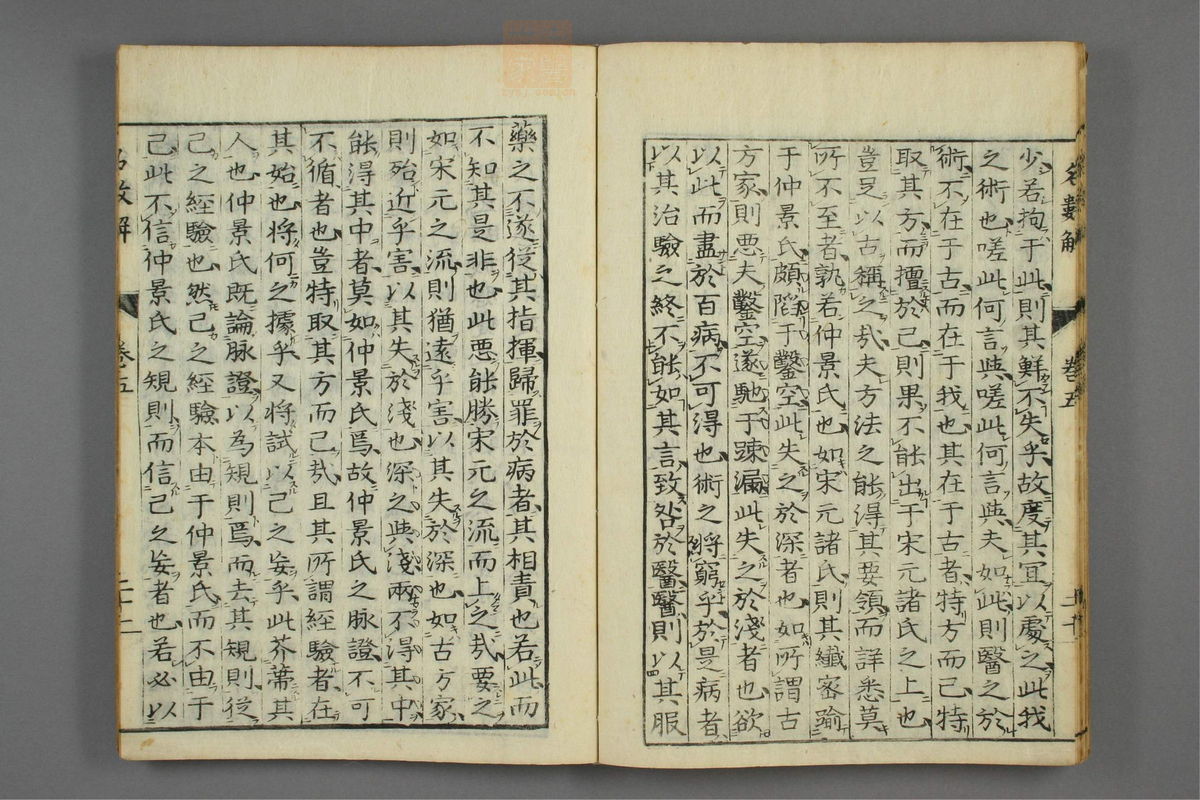 少若拘于此則其鮮不失乎故度其冝以處之此我
之術也嗟此何言與嗟此何言與夫如此則醫之於
術不在于古而在于我也其在于古者特方而已特
取其方而擅於己則果不能出于宋元諸氏之上也
豈足以古稱之哉夫方法之能得其要領而詳悉莫
所不至者孰若仲景氏也如宋元諸氏則其纖密踰
于仲景氏頗陷于鑿空此失之於深者也如所謂古
方家則惡夫鑿空遂馳于踈漏此失之於淺者也欲
以此而盡於百病不可得也術之將窮乎於是病者
以其治驗之終不能如其言致咎於醫醫則以其服
藥之不遂從其指揮歸罪於病者其相責也若此而
不知其是非也此惡能勝宋元之流而上之哉要之
如宋元之流則猶遠乎害以其失於深也如古方家
則殆近乎害以其失於淺也深之與淺兩不得其中
能得其中者莫如仲景氏焉故仲景氏之脉證不可
不循者也豈特取其方而已哉且其所謂經驗者在
其始也將何之據乎又將試以己之妄乎此芥蔕其
人也仲景氏既論脉證以為規則焉而去其規則從
己之經驗也然己之經驗本由于仲景氏而不由于
己此不信仲景氏之規則而信己之妄者也若必以
名數解
卷五